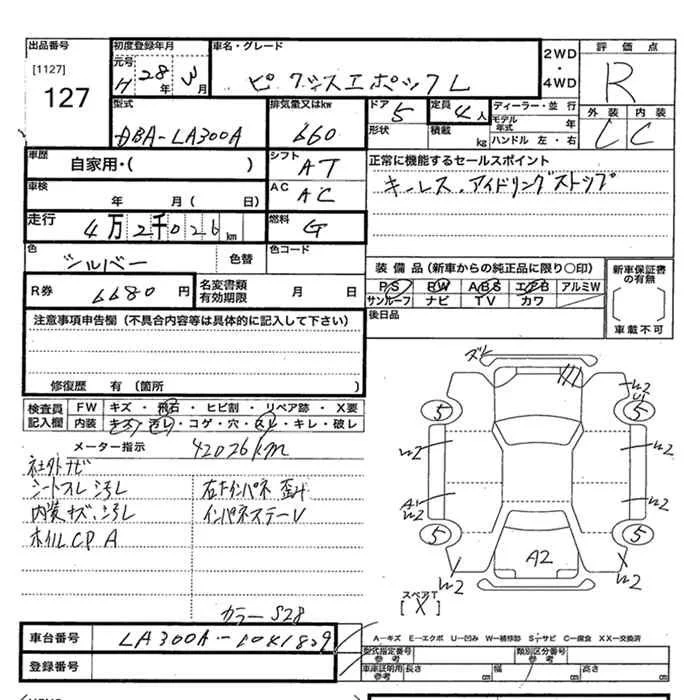 出品番号
[1127]
127
初度登録年月
元号
H 28年 3月
車名・グレード
ピクシスエポックL
2WD・4WD
評価点
R
外装 内装
C C
型式
DBA-LA300A
排気量又はkw
660
ドア 5
形状
定員 4人
積載 kg
ディーラー・並行
モデル年式 年
ハンドル 左・右
車歴
自家用・( )
シフト AT
車検
年 月( 日)
AC AC
正常に機能するセールスポイント
キーレス.アイドリングストップ
走行
4万2千026km
燃料 G
色
シルバー
色替
色コード
R券 6680円
名変書類有効期限 月 日
装備品(新車からの純正品に限り〇印)
PS PW ABS エアB アルミW
サンルーフ ナビ TV カワ
新車保証書の有無
[ ]
車載不可
後日品
注意事項申告欄(不具合内容等は具体的に記入して下さい)
修復歴 有(箇所 )
検査員記入欄
FW キズ・飛石・ヒビ割・リペア跡・X要
内装 キズ・汚レ・コゲ・穴・スレ・キレ・破レ
メーター指示 42026km
社外ナビ
シートスレ 汚レ
内装キズ、汚レ
ホイルCP A
インパネステーV
カラー S28
ズレ
W2
U1
5
5
W2
W2
A1
W2
W2
5
5
W2
W2
A2
スペアT
[X]
車台番号
登録番号
A―キズ E―エクボ U―凹み W―補修跡 S―サビ C―腐食 XX―交換済
型式指定番号 参考
類別区分番号 参考
車庫証明用参考
長さ cm 幅 cm 高さ cm